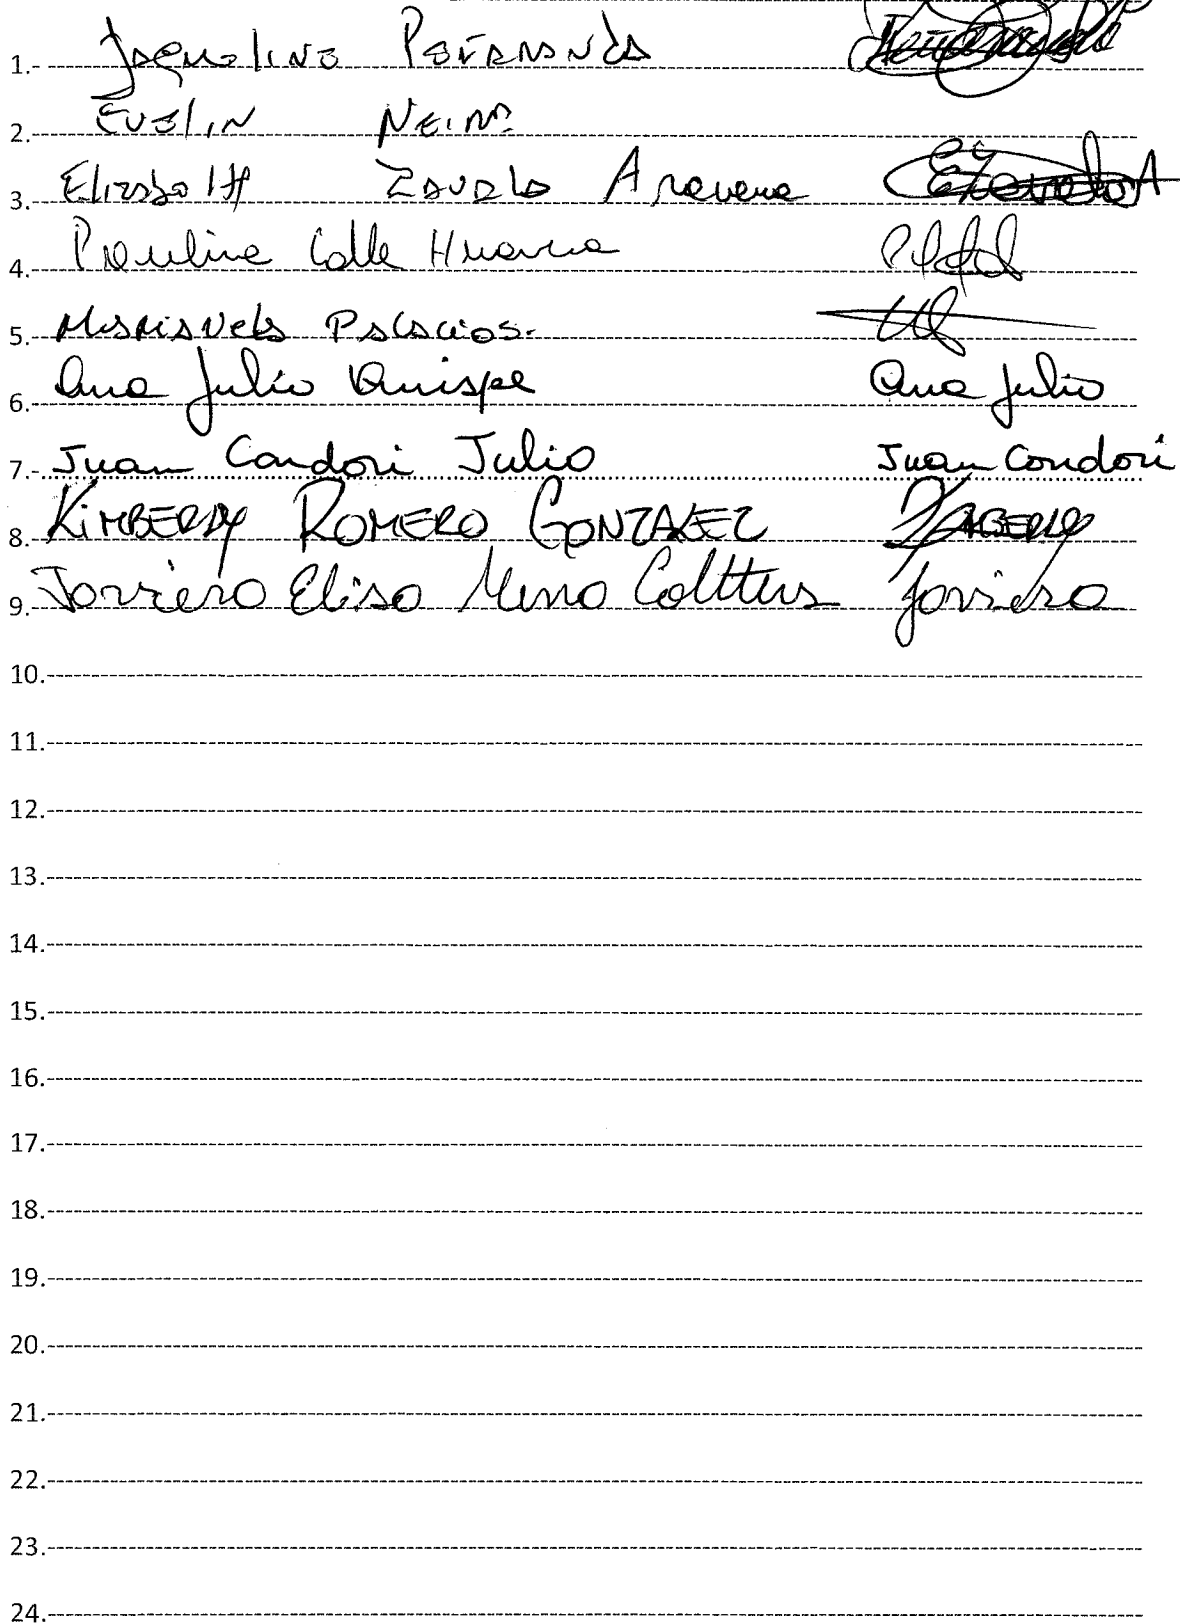 1.- Jaqueline Peñaranda
2. Evelin Neira
3. Elizabeth Zavala Aravena EZavala A
4. Paulina Calle Huanca
5. Marianela Palacios.
6. Ana Julia Quispe Ana Julia
7.- Juan Condori Julio Juan Condori
8. KIMBERLY ROMERO GONZALEZ KIMBERLY
9. Javiera Elisa Mena Javiera
10.
11.
12.
13.
14.
15.
16.
17.
18.
19.
20.
21.
22.
23.
24.